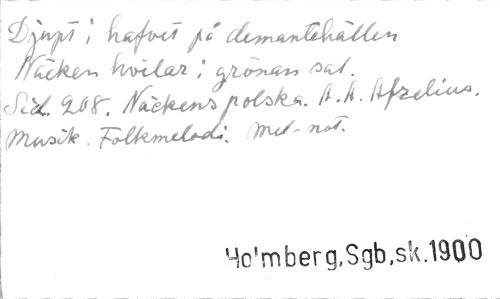 Djupt i hafvet på demantehällen
Näcken hvilar i grönan sal.
Sid. 208. Näckens polska. A. A. Afzelius.
Musik. Folkmelodi. Mel-not.
Holmberg, Sgb, sk. 1900